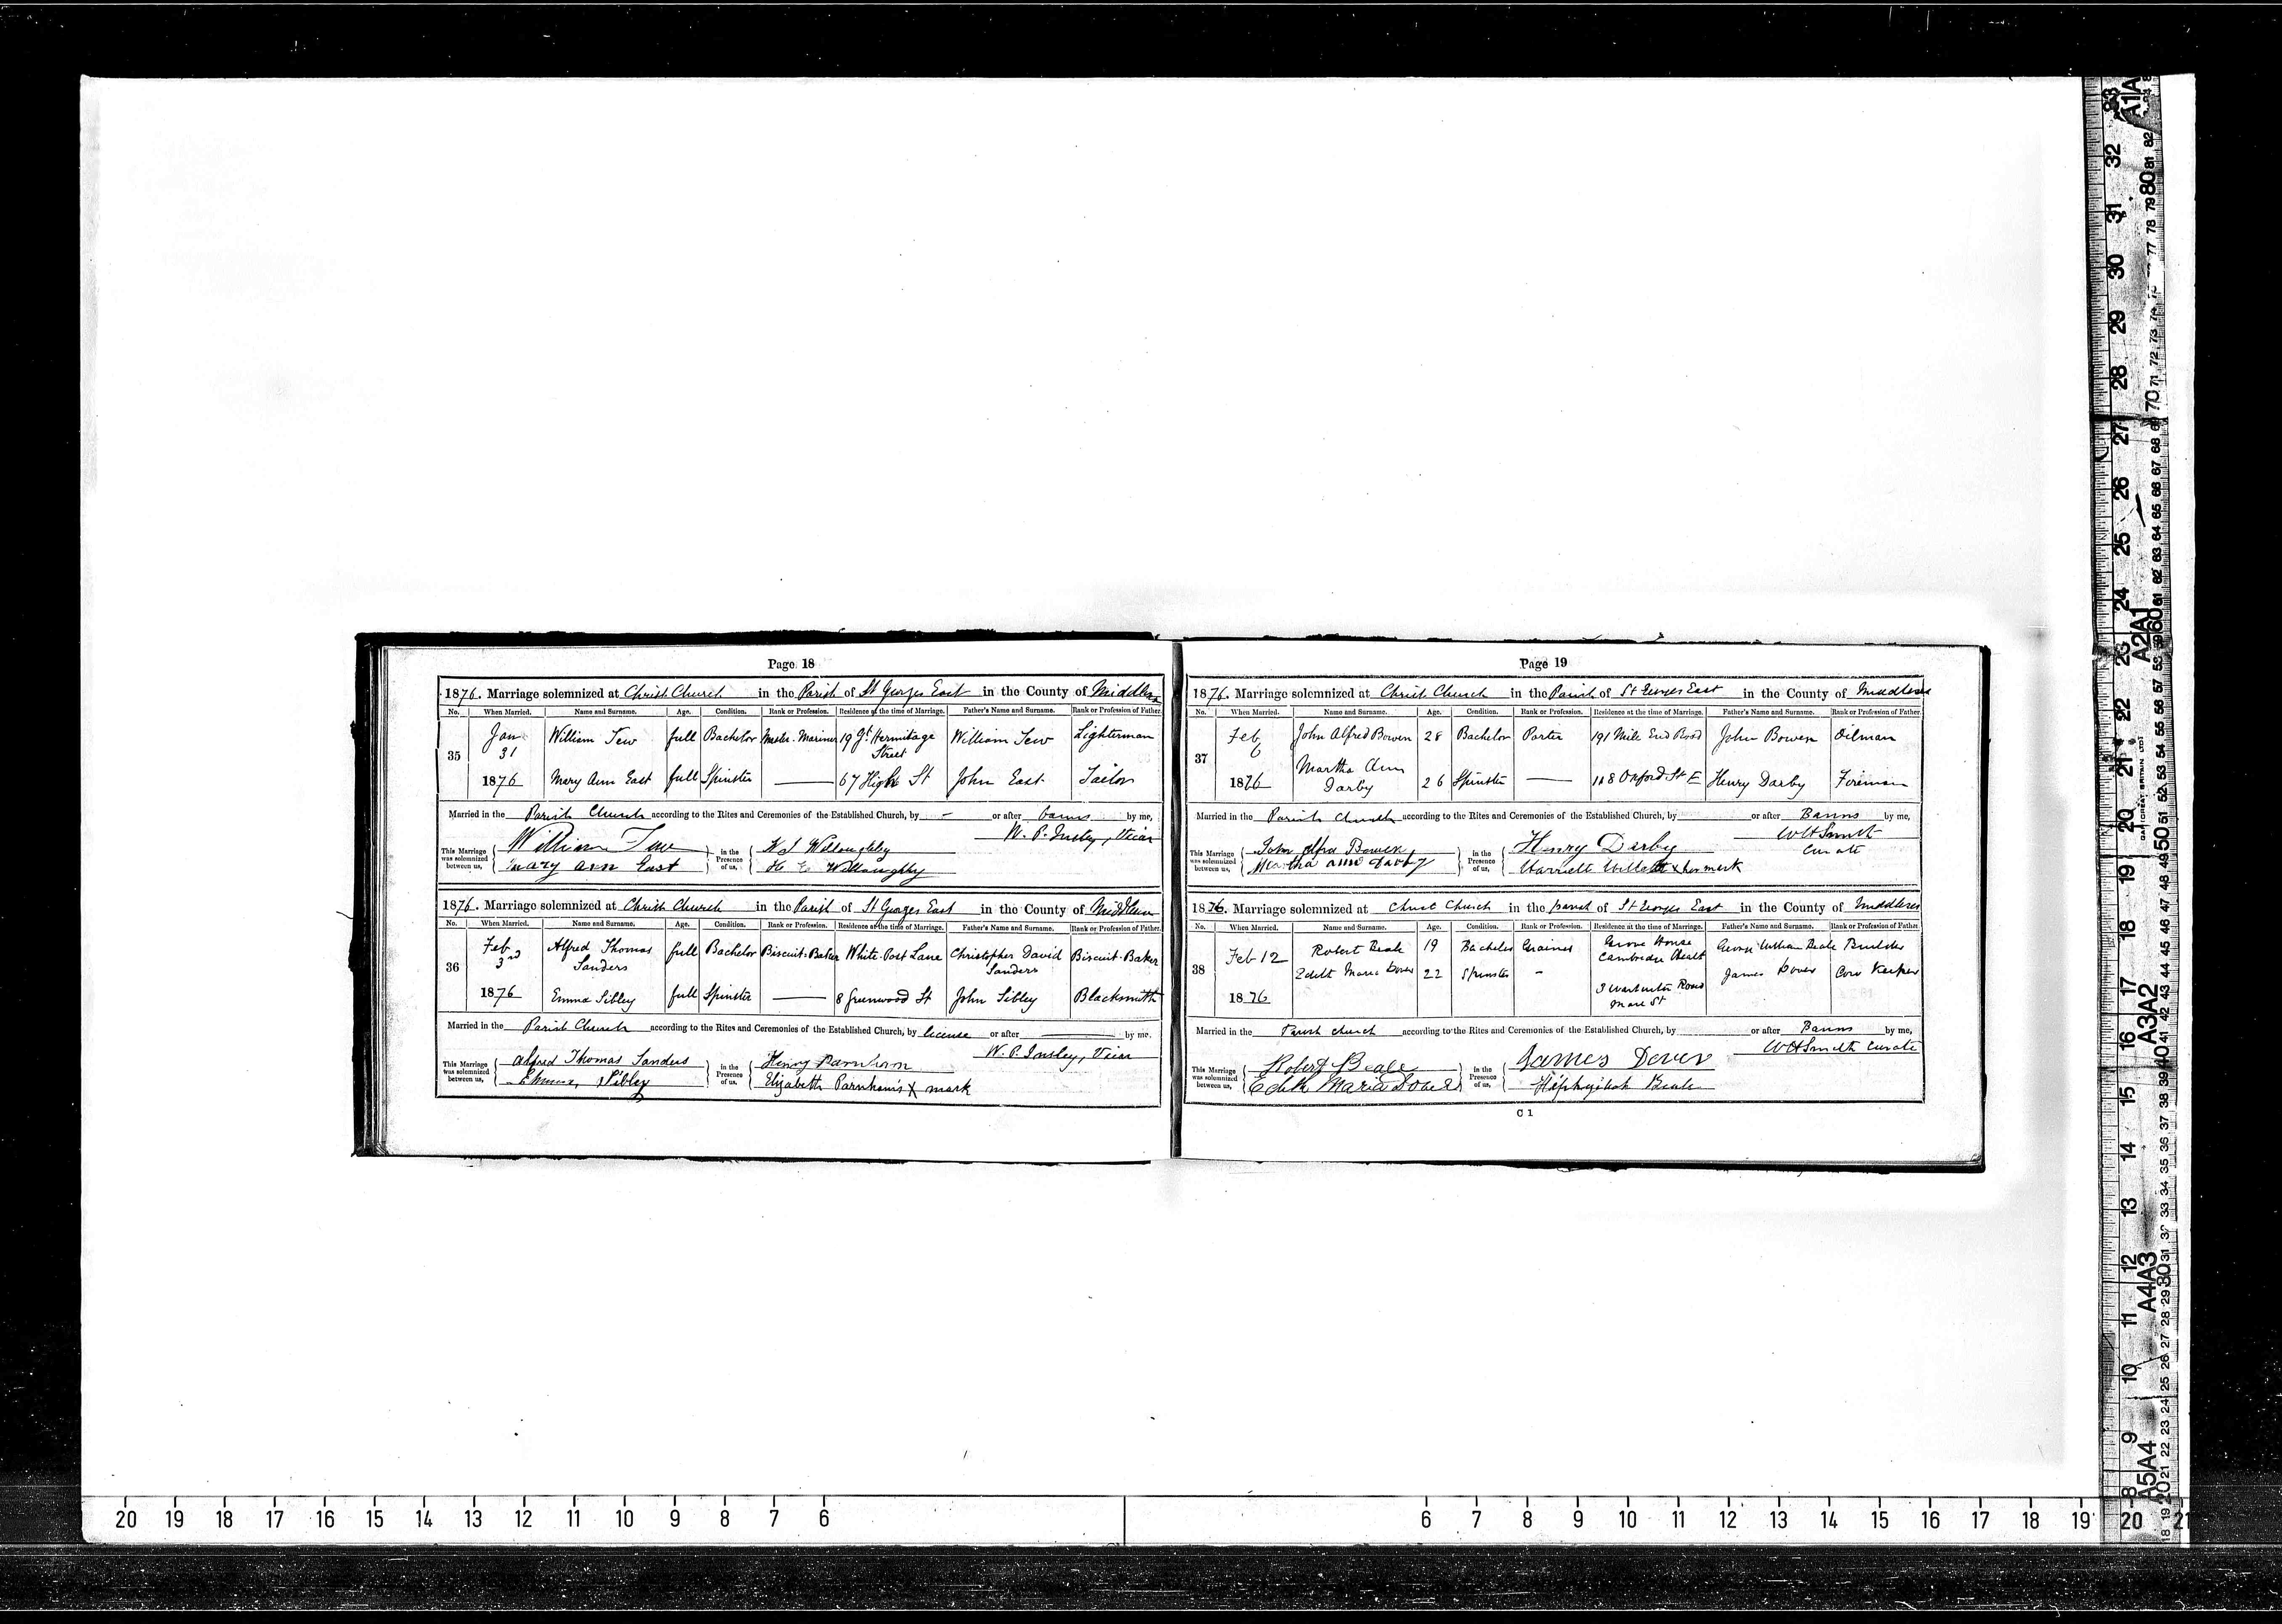 Page 18
1876. Marriage solemnized at Christ Church in the Parish of St Georges East in the County of Middlesex
No. When Married. Name and Surname. Age. Condition. Rank or Profession. Residence at the time of Marriage. Father's Name and Surname. Rank or Profession of Father.
35 Jan 31 1876 William Tew full Bachelor Master-Mariner 19 Gt. Hermitage Street William Tew Lighterman
Mary Ann East full Spinster 67 High St John East Tailor
Married in the Parish Church according to the Rites and Ceremonies of the Established Church, by - or after banns by me,
W. P. Insley, Vicar
This Marriage was solemnized between us, William Tew in the Presence of us, Willoughby
Mary ann East H E Willoughby
1876. Marriage solemnized at Christ Church in the Parish of St Georges East in the County of Middlesex
No. When Married. Name and Surname. Age. Condition. Rank or Profession. Residence at the time of Marriage. Father's Name and Surname. Rank or Profession of Father.
36 Feb 3rd 1876 Alfred Thomas Sanders full Bachelor Biscuit-Baker White-Post Lane Christopher David Sanders Biscuit-Baker
Emma Sibley full Spinster 8 Greenwood St John Sibley Blacksmith
Married in the Parish Church according to the Rites and Ceremonies of the Established Church, by license or after by me.
W. P. Insley, Vicar
This Marriage was solemnized between us, Alfred Thomas Sanders in the Presence of us, Henry Parnham
Emma Sibley Elizabeth Parnham's X mark
Page 19
1876. Marriage solemnized at Christ Church in the Parish of St Georges East in the County of Middlesex
No. When Married. Name and Surname. Age. Condition. Rank or Profession. Residence at the time of Marriage. Father's Name and Surname. Rank or Profession of Father.
37 Feb 6 1876 John Alfred Bowen 28 Bachelor Porter 191 Mile End Road John Bowen Oilman
Martha Ann Darby 26 Spinster 118 Oxford St E Henry Darby Foreman
Married in the Parish Church according to the Rites and Ceremonies of the Established Church, by or after Banns by me,
WH Smith Curate
This Marriage was solemnized between us, John Alfred Bowen in the Presence of us, Henry Derby
Martha ann Darby Harriett x her mark
1876. Marriage solemnized at Christ Church in the parish of St Georges East in the County of Middlesex
No. When Married. Name and Surname. Age. Condition. Rank or Profession. Residence at the time of Marriage. Father's Name and Surname. Rank or Profession of Father
38 Feb 12 1876 Robert Beale 19 Bachelor Grainer Grove House Cambridge Heath George William Beale Builder
Edith Maria Dover 22 Spinster - 3 Warburton Road Mare St James Dover Cow Keeper
Married in the Parish church according to the Rites and Ceremonies of the Established Church, by or after Banns by me,
WH Smith Curate
This Marriage was solemnized between us, Robert Beale in the Presence of us, James Dover
Edith Maria Dover Hephzibah Beale
C 1
20 19 18 17 16 15 14 13 12 11 10 9 8 7 6 6 7 8 9 10 11 12 13 14 15 16 17 18 19 20 21